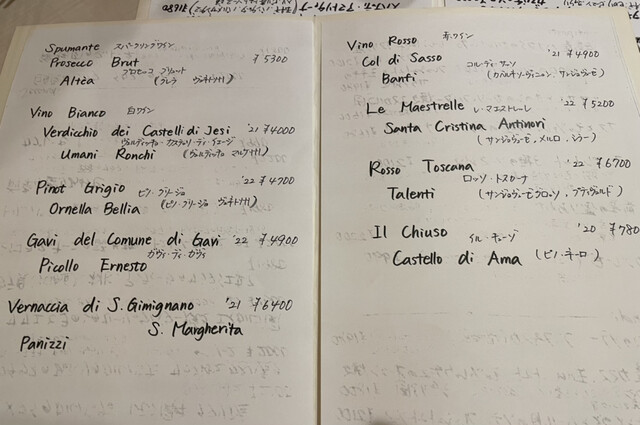 Spumante スパークリングワイン
Prosecco Brut ¥5300
プロセッコ ブリュット
Altèa (グレラ ヴェネト州)
Vino Bianco 白ワイン
Verdicchio dei Castelli di Jesi '21 ¥4000
ヴェルディッキオ・カステッリ・ディ・イエージ
Umani Ronchi (ヴェルディッキオ マルケ州)
Pinot Grigio ピノ・グリージョ '22 ¥4700
Ornella Bellia (ピノ・グリージョ ヴェネト州)
Gavi del Comune di Gavi '22 ¥4900
ガヴィ・ディ・ガヴィ
Picollo Ernesto
Vernaccia di S. Gimignano '21 ¥6400
S. Margherita
Panizzi
Vino Rosso 赤ワイン
Col di Sasso コル・ディ・サッソ '21 ¥4900
Banfi (カベルネソーヴィニョン, サンジョヴェーゼ)
Le Maestrelle レ・マエストレーレ '22 ¥5200
Santa Cristina Antinori
(サンジョヴェーゼ, メルロ, シラー)
Rosso Toscana '22 ¥6700
ロッソ・トスカーナ
Talenti (サンジョヴェーゼグロッソ,
Il Chiuso イル・キューゾ '20 ¥780
Castello di Ama (ピノ・ネーロ)